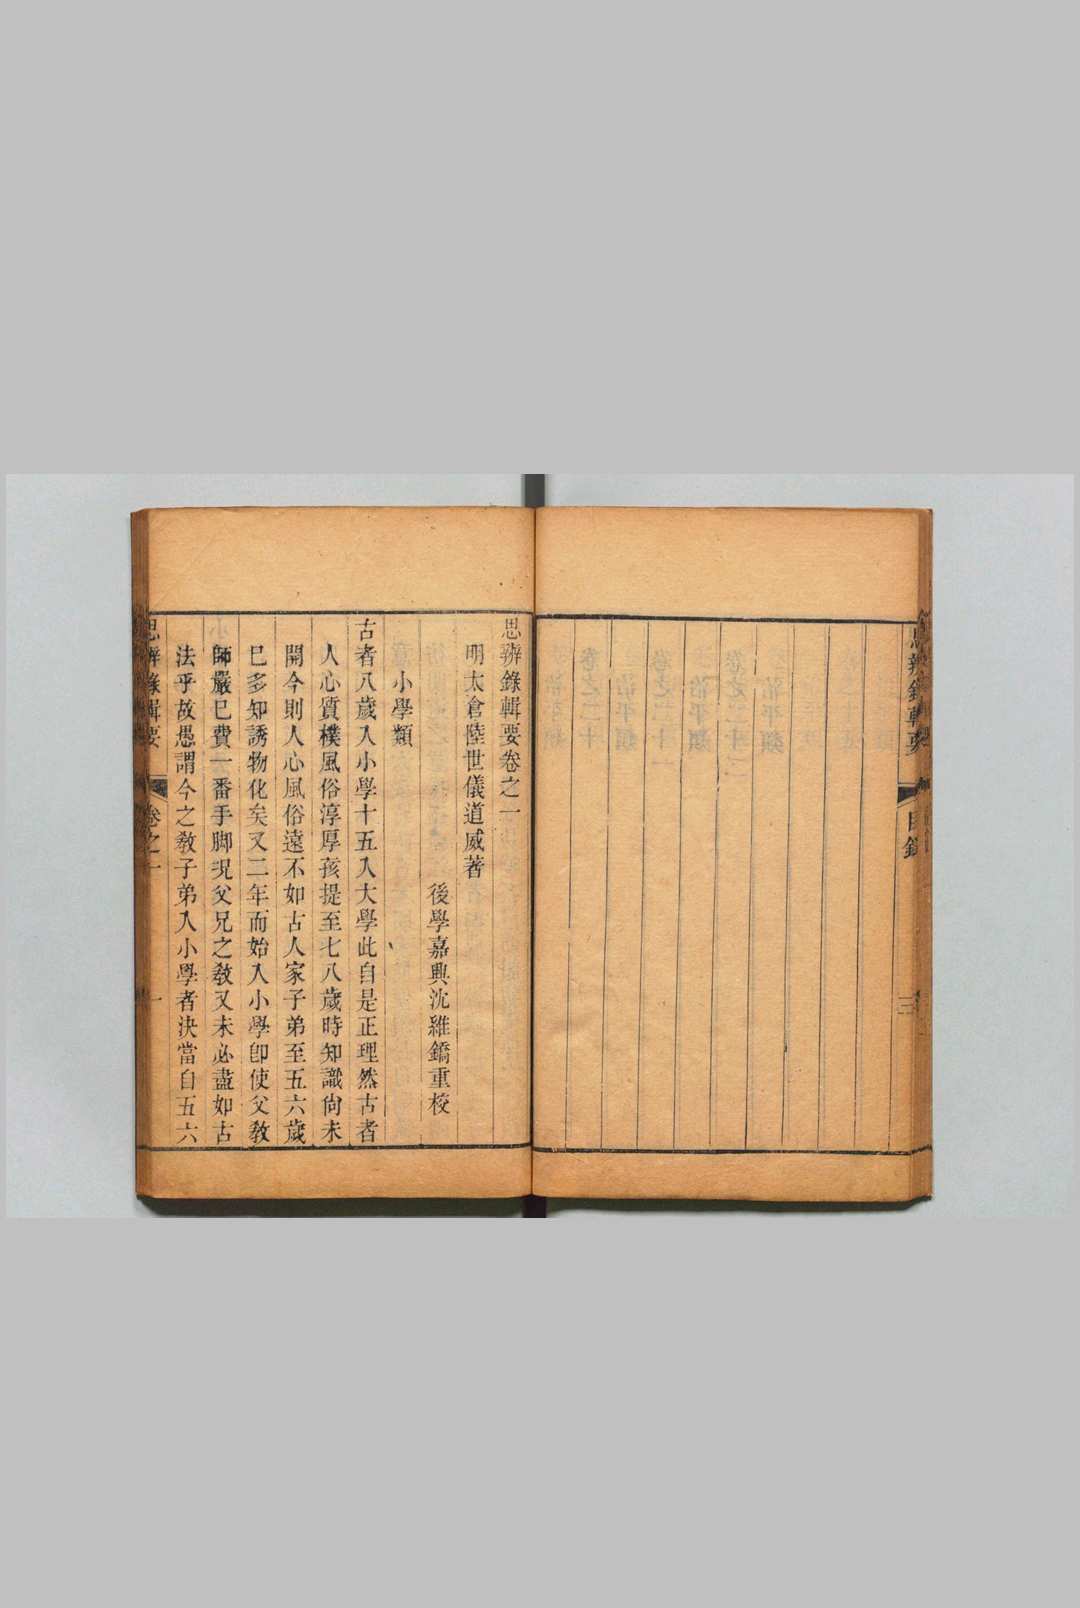 思辨錄輯要
目錄
三
思辨錄輯要卷之一
明太倉陸世儀道威著
後學嘉興沈維鐈重校
小學類
古者八歲入小學十五入大學此自是正理然古者
人心質樸風俗淳厚孩提至七八歲時知識尚未
開今則人心風俗遠不如古人家子弟至五六歲
已多知誘物化矣又二年而始入小學卽使父敎
師嚴已費一番手脚况父兄之敎又未必盡如古
法乎故愚謂今之敎子弟入小學者決當自五六
思辨錄輯要
卷之一
一